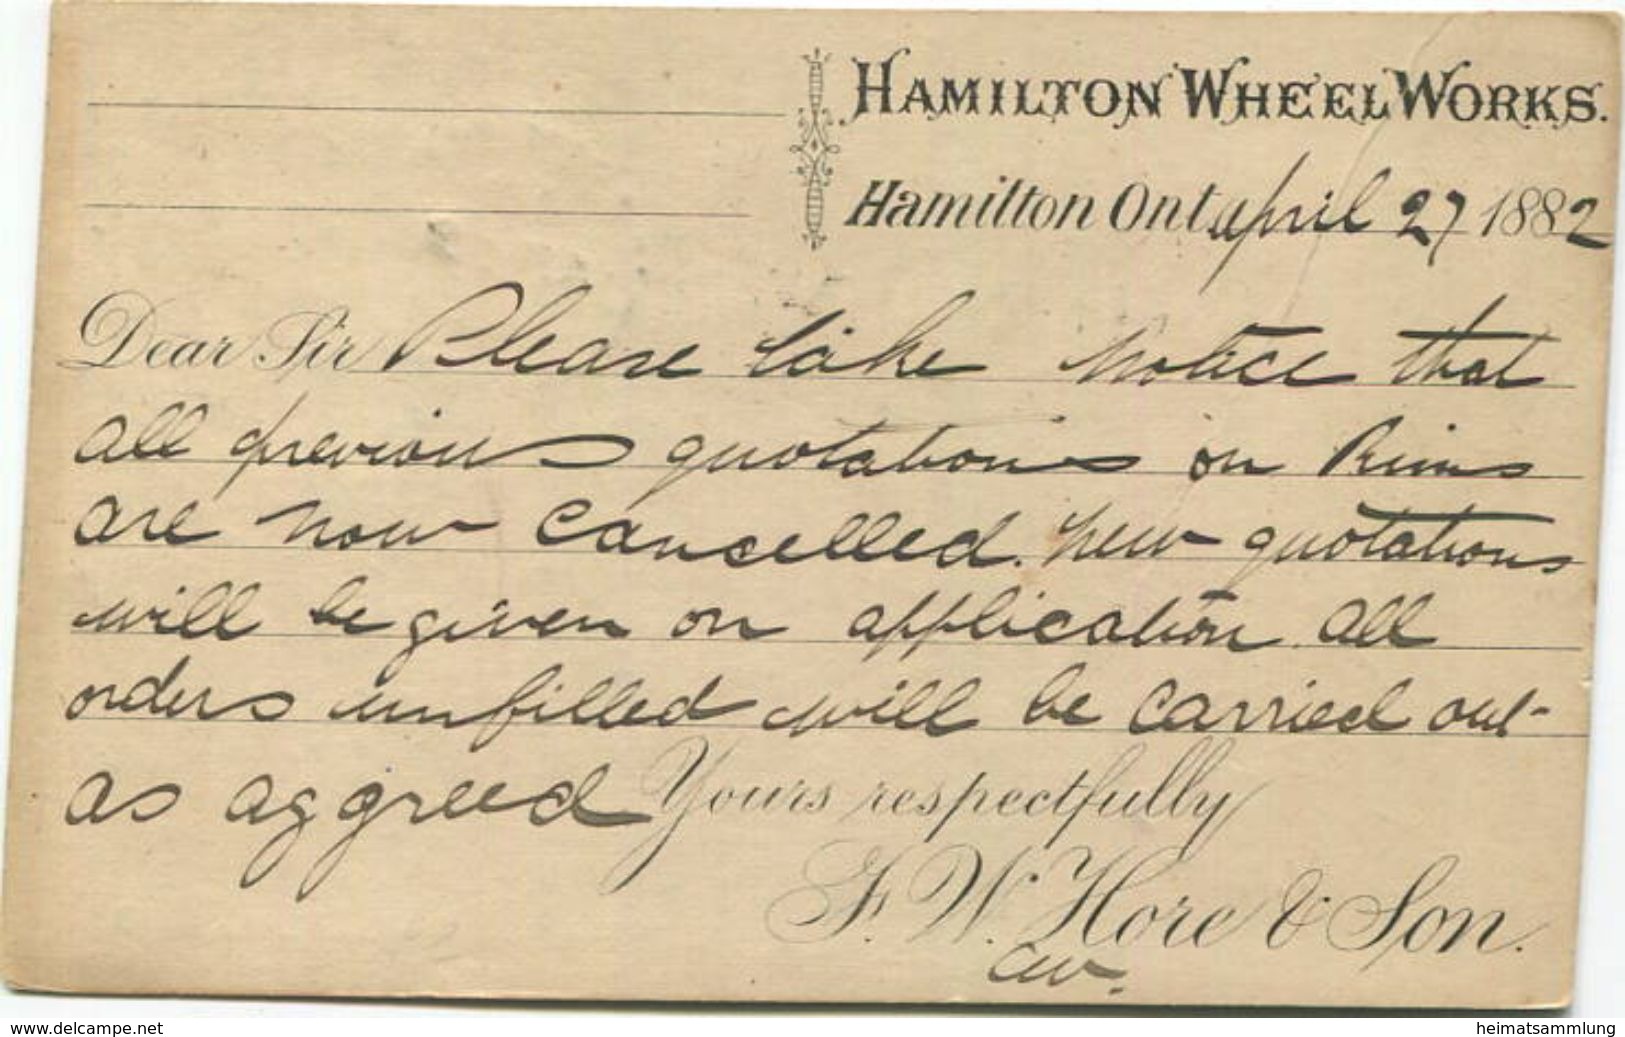 HAMILTON WHEEL WORKS.
Hamilton Ont. april 27 1882
Dear Sir Please take notice that
all previous quotations on Rims
are now cancelled. new quotations
will be given on application. all
orders unfilled will be carried out
as aggreed Yours respectfully
F. W. Hore & Son.
www.delcampe.net
heimatsammlung